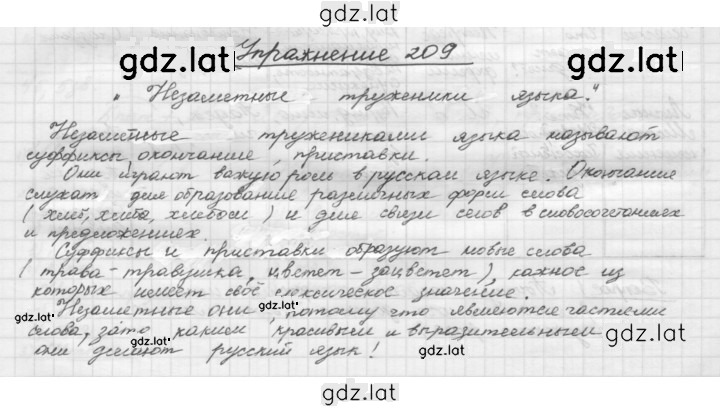 gdz.lat
Упражнение 209
gdz.lat
gdz.lat
„Незаметные труженики языка."
Незаметные тружениками языка называют
суффиксы, окончание, приставки.
Они играют важную роль в русском языке. Окончание
служат для образование различных форм слова
(хлеб, хлеба, хлебом) и для связи слов в словосочетаниях
и предложениях.
Суффиксы и приставки образуют новые слова
(трава - травушка, цветет - зацветет), каждое из
которых имеет своё лексическое значение.
gdz.lat
Незаметные они, потому что являются частями
gdz.lat
слова, зато каким красивым и выразительным
gdz.lat
gdz.lat
они делают русский язык!
gdz.lat
gdz.lat